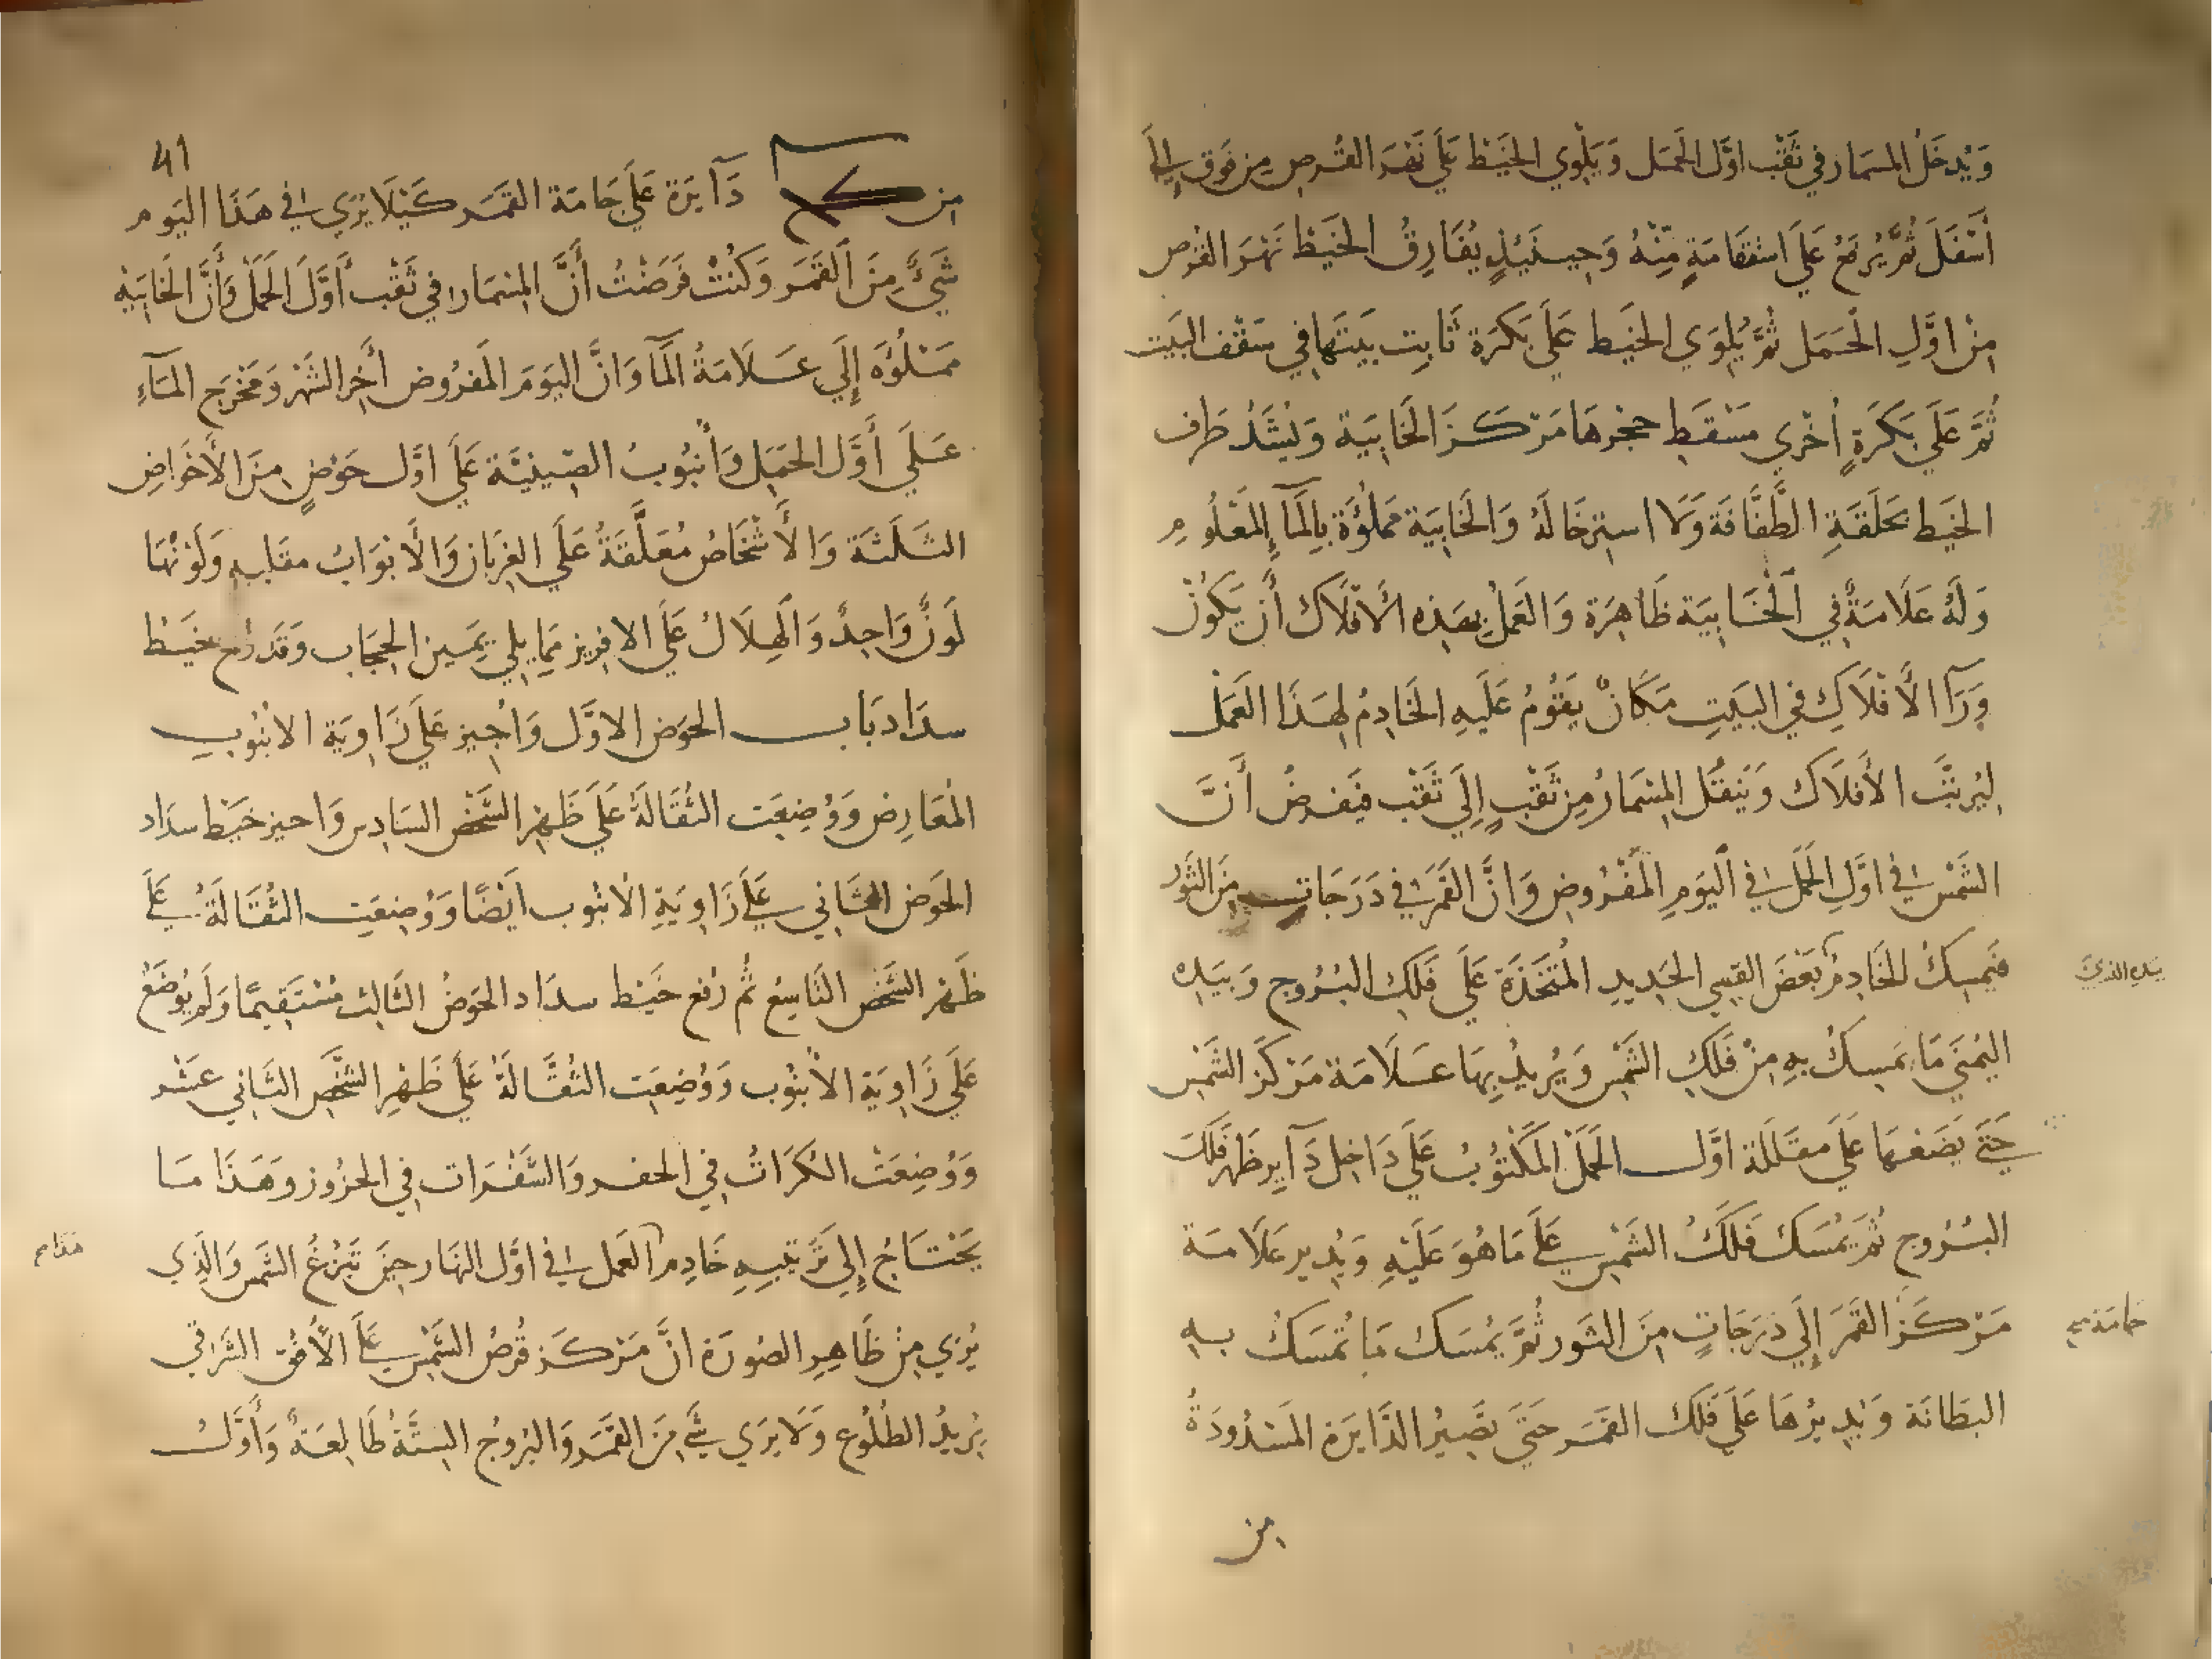 وَيُدخَلُ المسمار في ثَقْب اوّل الحمَل وَيَلْوي الخَيْط عَلَي نَهَر القُرص مِن فَوق اِلَى
أسْفَلَ ثُمَّ يُرفَعُ عَلَى اسْتقَامَةٍ مِنْهُ وَحِينَئِذٍ يُفَارِقُ الخَيْط نَهَرَ القُرص
مِنْ اوَّلِ الْحَمَل ثُمَّ يُلوَي الخَيط عَلَي بَكرَة ثَابِت بَيتهَا في سَقْف البَيت
ثُمَّ عَلَي بَكَرَةٍ اُخْري مَسْقَط حجرهَا مَرْكَز الخَابِيَة وَيُشَدُّ طَرف
الخَيَط بحَلَقَةِ الطَّفَّافَة وَلَا استرخَالَهُ وَالخَابِيَة مَملُؤَة بِالمَآءِ المَعْلُومِ
وَلَهُ عَلَامَةٌ في الْخَابِيَة ظَاهِرَة وَالعَمَلُ بهَذِه الأَفْلَاك أَن يَكُونَ
وَرَآ الأَفْلَاكِ في البَيتِ مَكَانٌ يَقُومُ عَلَيهِ الخَادِمُ لِهَذَا العَمَل
لِيُرتّبَ الأفلَاك وَيَنقُل المِسْمَارُ مِن ثَقْبٍ اِلَي ثَقْب فَيَفرضُ أَنَّ
الشَمْس في اوَّلِ الحَمَل في اليَومِ المَفْرُوضِ وَانَّ القَمَرَ في دَرَجَاتٍ مِنَ الثَور
فَيمسِكُ الخَادِمُ بَعْضَ القِسِي الحَدِيدِ المُتَّخَذَة عَلَي فَلَكِ البُرُوج وَبِيَدِه
بيَدِه الَّذِي
اليُمنَي مَا يَمسِكُ بِهِ مِنْ فَلَكِ الشَمْس وَيُرِيدُ بِهَا عَلَامَة مَرْكَز الشَمْس
حَتَّى يَضَعهَا عَلَى مقَابَلَة اوَّل الحَمَل المَكْتُوبُ عَلَي دَاخِل دَآيِر ظَهر فَلَك
البُرُوج ثُمَّ يُمْسَك فَلَكُ الشَمْس عَلَى مَا هُوَ عَلَيْهِ وَيُدِير عَلَامَة
مَرْكَز القَمَر اِلَي دَرَجَاتٍ مِنَ الثَور ثُمَّ يُمْسَك مَا تُمسَكُ بِهِ
البَطَانَة وَيُدِيرُهَا عَلَي فَلَك القَمَر حَتَّى تَصِيرُ الدَّايِرَة المَسْدُودَةُ
من
41
مِن دَآيِرَة عَلَي جَامَة القَمَر كَيْلَا يُرَي في هَذَا اليَوم
شَيْءٌ مِنَ القَمَر وَكُنْتُ فَرَضْتُ أنَّ المسْمَار في ثَقْب أوَّل الحَمَل وَأَنَّ الخَابيَة
مَمْلُؤَه إِلَي عَلَامَةُ المَآ وَانَّ اليَومَ المَفرُوض أخِر الشَهْر وَمَخْرَج المَآءِ
عَلَي أَوَّل الحَمَل وَأُنبُوبُ الصّينيَّة عَلَي اوَّل حَوْضٍ مِنَ الأَحْوَاضِ
الثَلَثَة وَالأَشْخَاصُ مُعَلَّقَةٌ عَلَي الغِربَان وَالأَبْوَابُ مقَلبه وَلَوْنُهَا
لَونٌ وَاحِدٌ وَالهِلَالُ عَلَي الافرِيز مِمَا يلي يَمِين الحِجَاب وَقَد رُفع خَيْط
سدَاد بَاب الحَوض الاوَّل وَأُجِيز عَلَي زَاويَة الانبُوب
المُعَارِض وَوُضِعَت الثقَالَةُ عَلَي ظَهْر الشَّخْص السَادِس وَاجيز خَيط سدَاد
الحَوض الثَاني عَلَي زَاوِيَةِ الأنبُوب اَيضًا وَوُضِعَت الثقَالَةُ عَلَى
ظَهْر الشَّخْص التَاسِع ثُم رُفع خَيْط سدَاد الحَوضُ الثَالِث مُسْتَقِيمًا وَلَم يُوضَعْ
عَلَي زَاوِيَة الأنبُوب وَوُضِعَت الثقَالَة عَلَي ظَهْرِ الشَّخْصِ الثَاني عشَر
وَوُضِعَتْ الكُرَاتُ في الحفر وَالشَفْرَات في الحزُوز وَهَذَا مَا
يَحْتَاجُ إلَي تَرتيبِهِ خَادِمُ العَمَل في اوَّل النهَار حِينَ تَبزُغُ الشَمس وَالَّذِي
يُرَي مِنْ ظَاهِرِ الصُورَة انَّ مَرْكَز قُرصُ الشَمْس عَلَى الأُفُق الشَرقي
يُرِيدُ الطُلُوع وَلَا يرَي شَيْ مِنَ القَمَر وَالبُرُوج السِتَّةُ طَالِعَةٌ وَأَوَّلُ